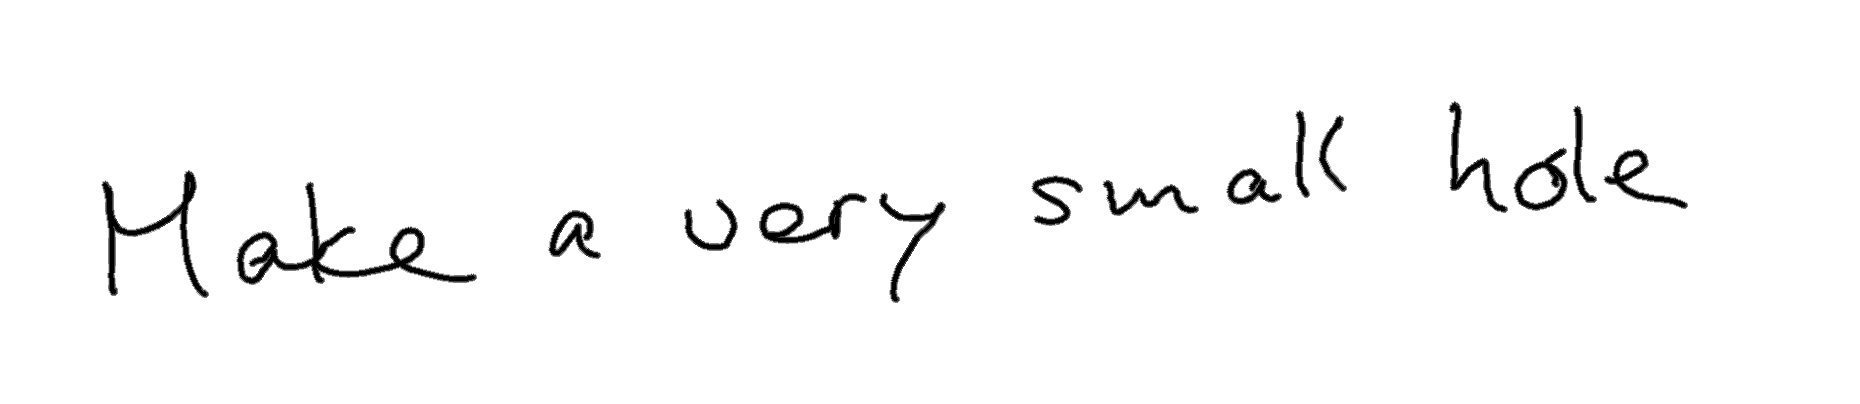 Make a very small hole